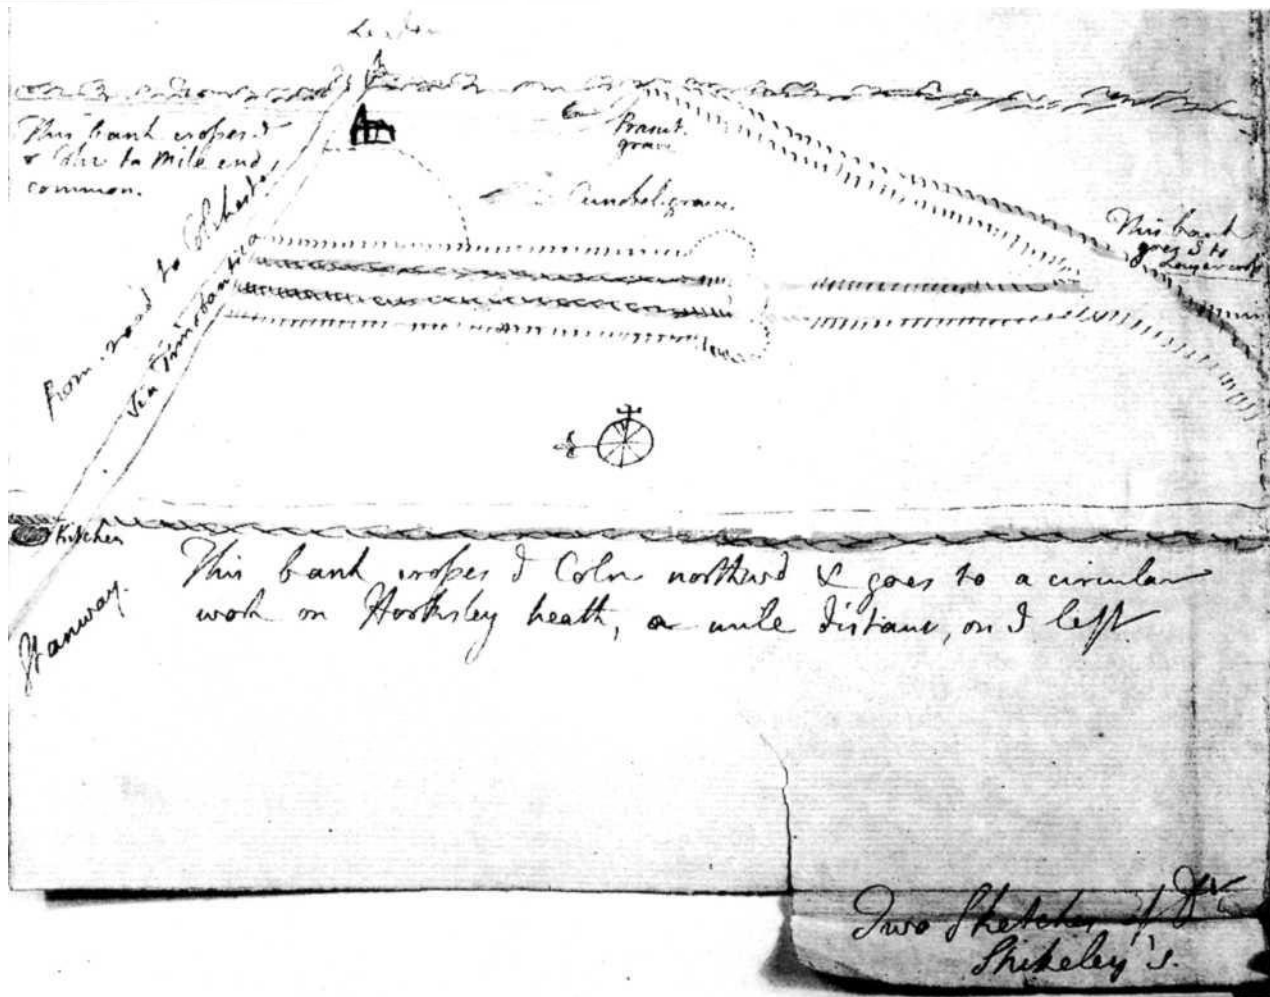 Lexden
This bank crosses ye
Coln to Mile end
common.
Prasut.
grave
Cunobel. grave.
This bank
goes S to
from road to Colchester
Via Trinobantica
Kitchen
This bank crosses ye Coln northwd & goes to a circular
work on Horksley heath, a mile distant, on ye left
Stanway.
Two Sketches of Dr
Stukeley's.